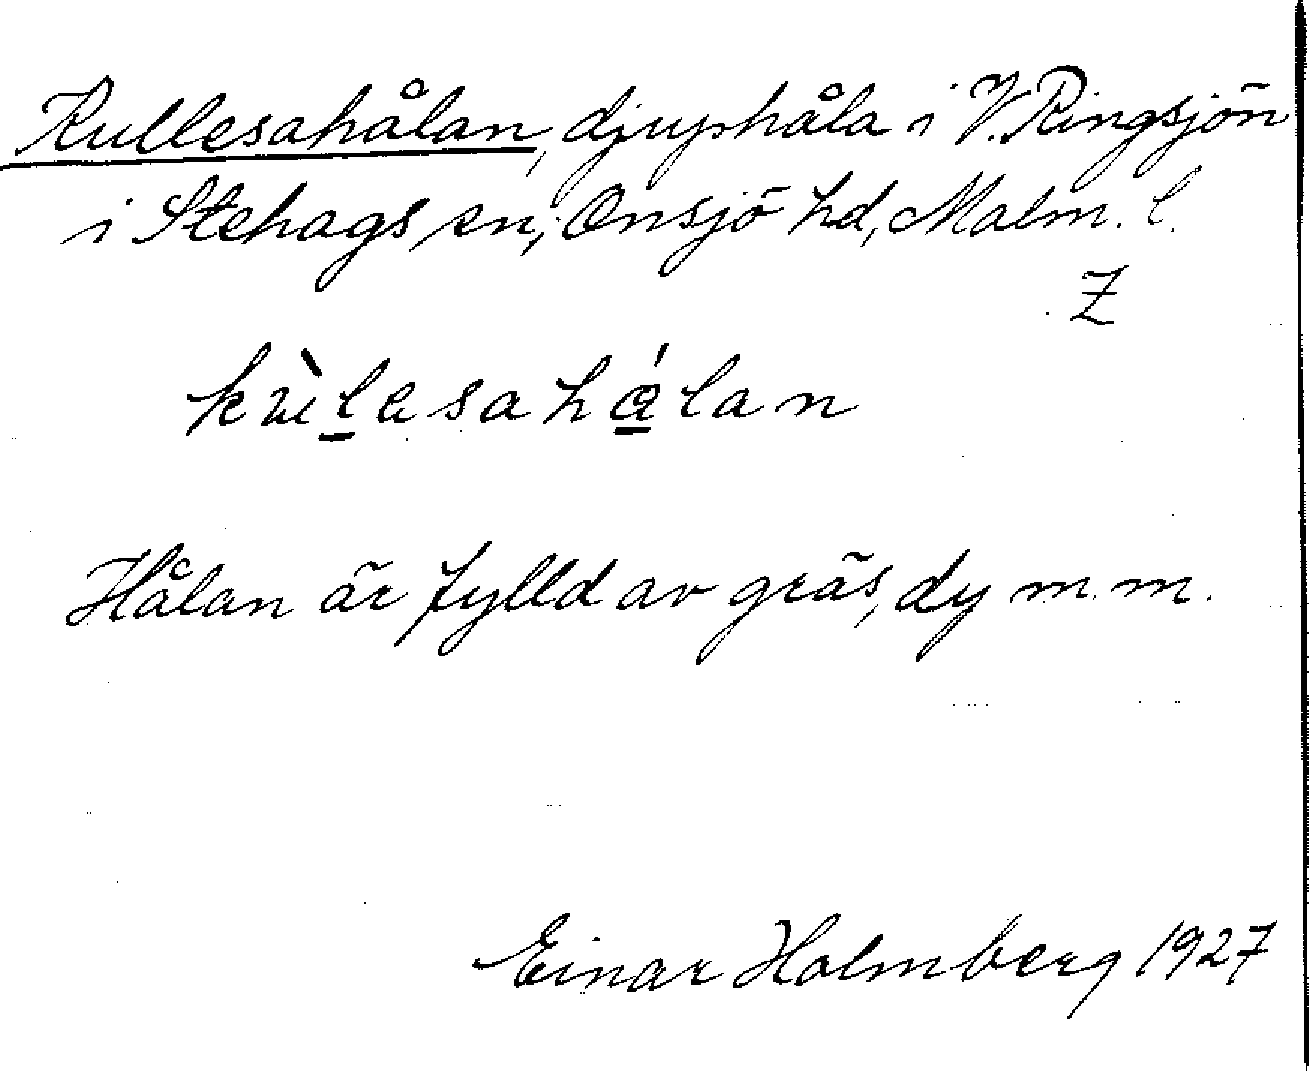 Kullesahålan, djuphåla i V. Ringsjön
i Stehags sn, Onsjö hd, Malm. l.
Z
kùlesahálan
Hålan är fylld av gräs, dy m. m.
Einar Holmberg 1927